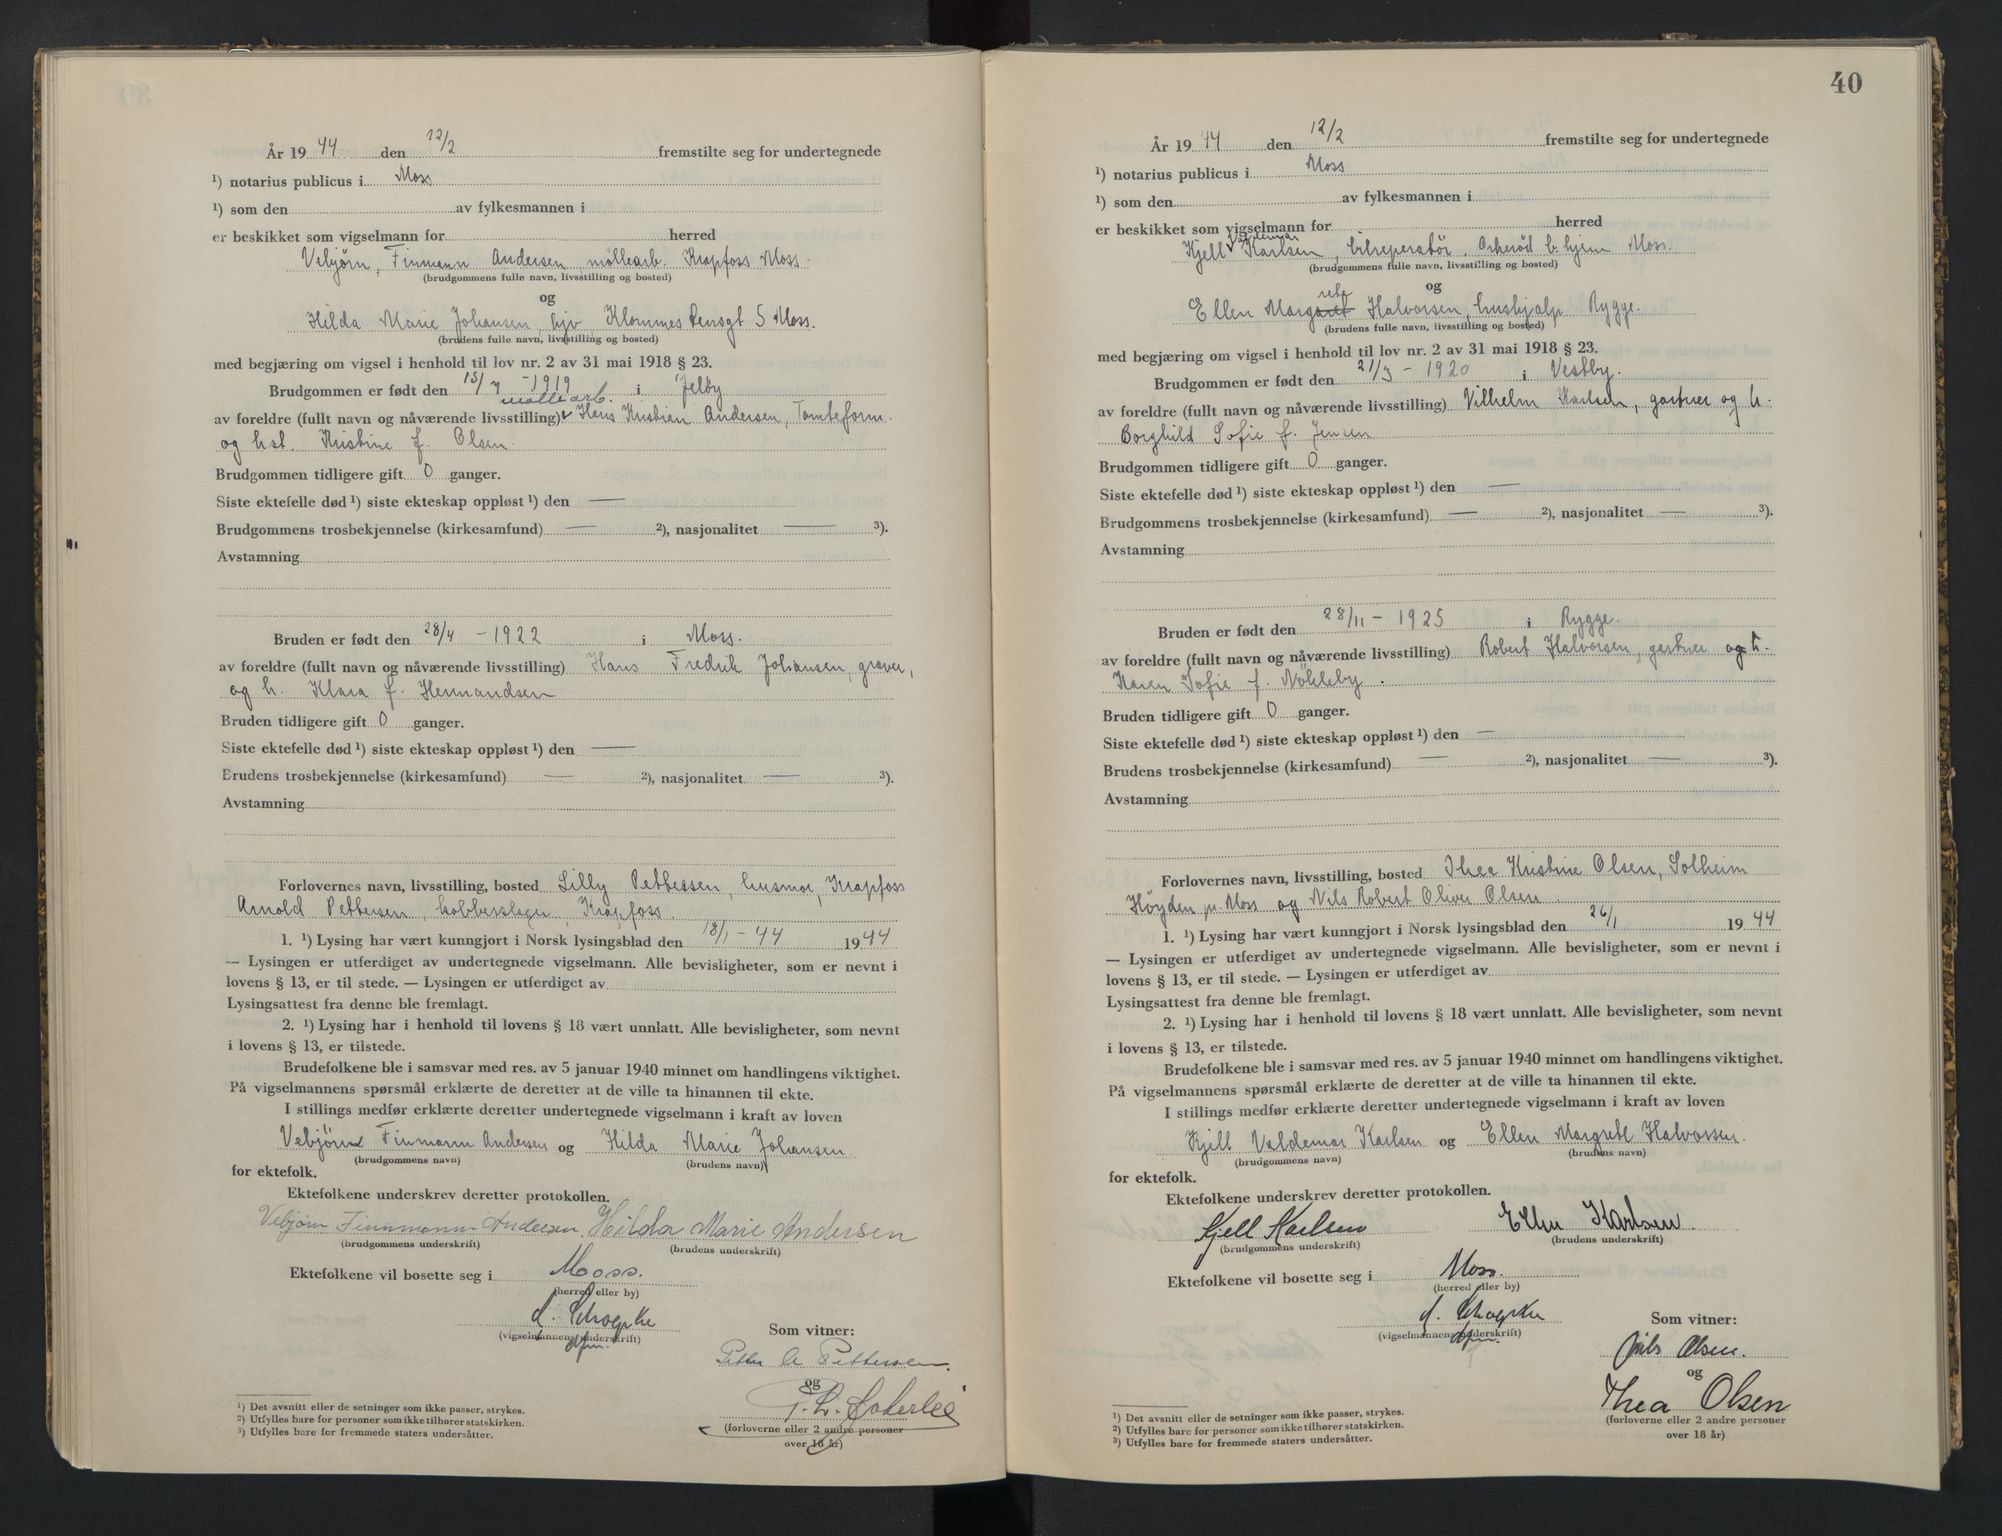 År 19 44 den 12/2 fremstilte seg for undertegnede
¹) notarius publicus i Moss
¹) som den av fylkesmannen i
er beskikket som vigselmann for herred
Vebjørn, Finmann Andersen, möllearb. Krapfoss Moss.
(brudgommens fulle navn, livsstilling og bosted)
og
Hilda Marie Johansen, hjv, Klommes 5 Moss.
(brudens fulle navn, livsstilling og bosted)
med begjæring om vigsel i henhold til lov nr. 2 av 31 mai 1918 § 23.
Brudgommen er født den 15/7 - 1919 i Jeløy
möllearb.
av foreldre (fullt navn og nåværende livsstilling) Hans Kristian Andersen, Tomteform.
og hst. Kristine f. Olsen.
Brudgommen tidligere gift 0 ganger.
Siste ektefelle død ¹) siste ekteskap oppløst ¹) den —
Brudgommens trosbekjennelse (kirkesamfund) — ²), nasjonalitet — ³).
Avstamning
Bruden er født den 28/4 - 1922 i Moss.
av foreldre (fullt navn og nåværende livsstilling) Hans Fredrik Johansen, graver,
og h. Klara f. Hermandsen
Bruden tidligere gift 0 ganger.
Siste ektefelle død ¹) siste ekteskap oppløst ¹) den —
Erudens trosbekjennelse (kirkesamfund) — ²), nasjonalitet — ³).
Avstamning
Forlovernes navn, livsstilling, bosted Lilly Pettersen, husmor, Krapfoss
Arnold Pettersen, kobberslager, Krapfoss.
1. ¹) Lysing har vært kunngjort i Norsk lysingsblad den 18/1 - 44 19 44
— Lysingen er utferdiget av undertegnede vigselmann. Alle bevisligheter, som er nevnt i
lovens § 13, er til stede. — Lysingen er utferdiget av
Lysingsattest fra denne ble fremlagt.
2. ¹) Lysing har i henhold til lovens § 18 vært unnlatt. Alle bevisligheter, som nevnt
i lovens § 13, er tilstede.
Brudefolkene ble i samsvar med res. av 5 januar 1940 minnet om handlingens viktighet.
På vigselmannens spørsmål erklærte de deretter at de ville ta hinannen til ekte.
I stillings medfør erklærte deretter undertegnede vigselmann i kraft av loven
Vebjörn Finmann Andersen og Hilda Marie Johansen
(brudgommens navn) (brudens navn)
for ektefolk.
Ektefolkene underskrev deretter protokollen.
Vebjørn Finnmann Andersen. Hilda Marie Andersen
(brudgommens underskrift) (brudens underskrift)
Ektefolkene vil bosette seg i Moss.
(herred eller by)
(vigselmannens underskrift)
Som vitner:
Pettersen.
og
(forloverne eller 2 andre personer
over 18 år)
¹) Det avsnitt eller de setninger som ikke passer, strykes.
²) Utfylles bare for personer som ikke tilhører statskirken.
³) Utfylles bare for fremmede staters undersåtter.
40
År 19 44 den 12/2 fremstilte seg for undertegnede
¹) notarius publicus i Moss
¹) som den av fylkesmannen i
er beskikket som vigselmann for herred
Valdemar
Kjell Karlsen, bilreperatör, Orkerød b. hjem Moss.
(brudgommens fulle navn, livsstilling og bosted)
og
rete
Ellen Margaret Halvorsen, hushjelp Rygge.
(brudens fulle navn, livsstilling og bosted)
med begjæring om vigsel i henhold til lov nr. 2 av 31 mai 1918 § 23.
Brudgommen er født den 21/3 - 1920 i Vestby.
av foreldre (fullt navn og nåværende livsstilling) Vilhelm Karlsen, gartner og h.
Borghild Sofie f. Jensen
Brudgommen tidligere gift 0 ganger.
Siste ektefelle død ¹) siste ekteskap oppløst ¹) den —
Brudgommens trosbekjennelse (kirkesamfund) — ²), nasjonalitet — ³).
Avstamning
Bruden er født den 28/11 - 1925 i Rygge.
av foreldre (fullt navn og nåværende livsstilling) Robert Halvorsen, gartner og h.
Karen Sofie f. Nökleby.
Bruden tidligere gift 0 ganger.
Siste ektefelle død ¹) siste ekteskap oppløst ¹) den —
Brudens trosbekjennelse (kirkesamfund) — ²), nasjonalitet — ³).
Avstamning
Forlovernes navn, livsstilling, bosted Thea Kristine Olsen, Solheim
Höyden pr. Moss og Nils Robert Oliver Olsen.
1. ¹) Lysing har vært kunngjort i Norsk lysingsblad den 26/1 19 44
— Lysingen er utferdiget av undertegnede vigselmann. Alle bevisligheter, som er nevnt i
lovens § 13, er til stede. — Lysingen er utferdiget av
Lysingsattest fra denne ble fremlagt.
2. ¹) Lysing har i henhold til lovens § 18 vært unnlatt. Alle bevisligheter, som nevnt
i lovens § 13, er tilstede.
Brudefolkene ble i samsvar med res. av 5 januar 1940 minnet om handlingens viktighet.
På vigselmannens spørsmål erklærte de deretter at de ville ta hinannen til ekte.
I stillings medfør erklærte deretter undertegnede vigselmann i kraft av loven
Kjell Valdemar Karlsen og Ellen Margrete Halvorsen.
(brudgommens navn) (brudens navn)
for ektefolk.
Ektefolkene underskrev deretter protokollen.
Kjell Karlsen Ellen Karlsen.
(brudgommens underskrift) (brudens underskrift)
Ektefolkene vil bosette seg i Moss.
(herred eller by)
(vigselmannens underskrift)
Som vitner:
Nils Olsen.
og
Thea Olsen
(forloverne eller 2 andre personer
over 18 år)
¹) Det avsnitt eller de setninger som ikke passer, strykes.
²) Utfylles bare for personer som ikke tilhører statskirken.
³) Utfylles bare for fremmede staters undersåtter.